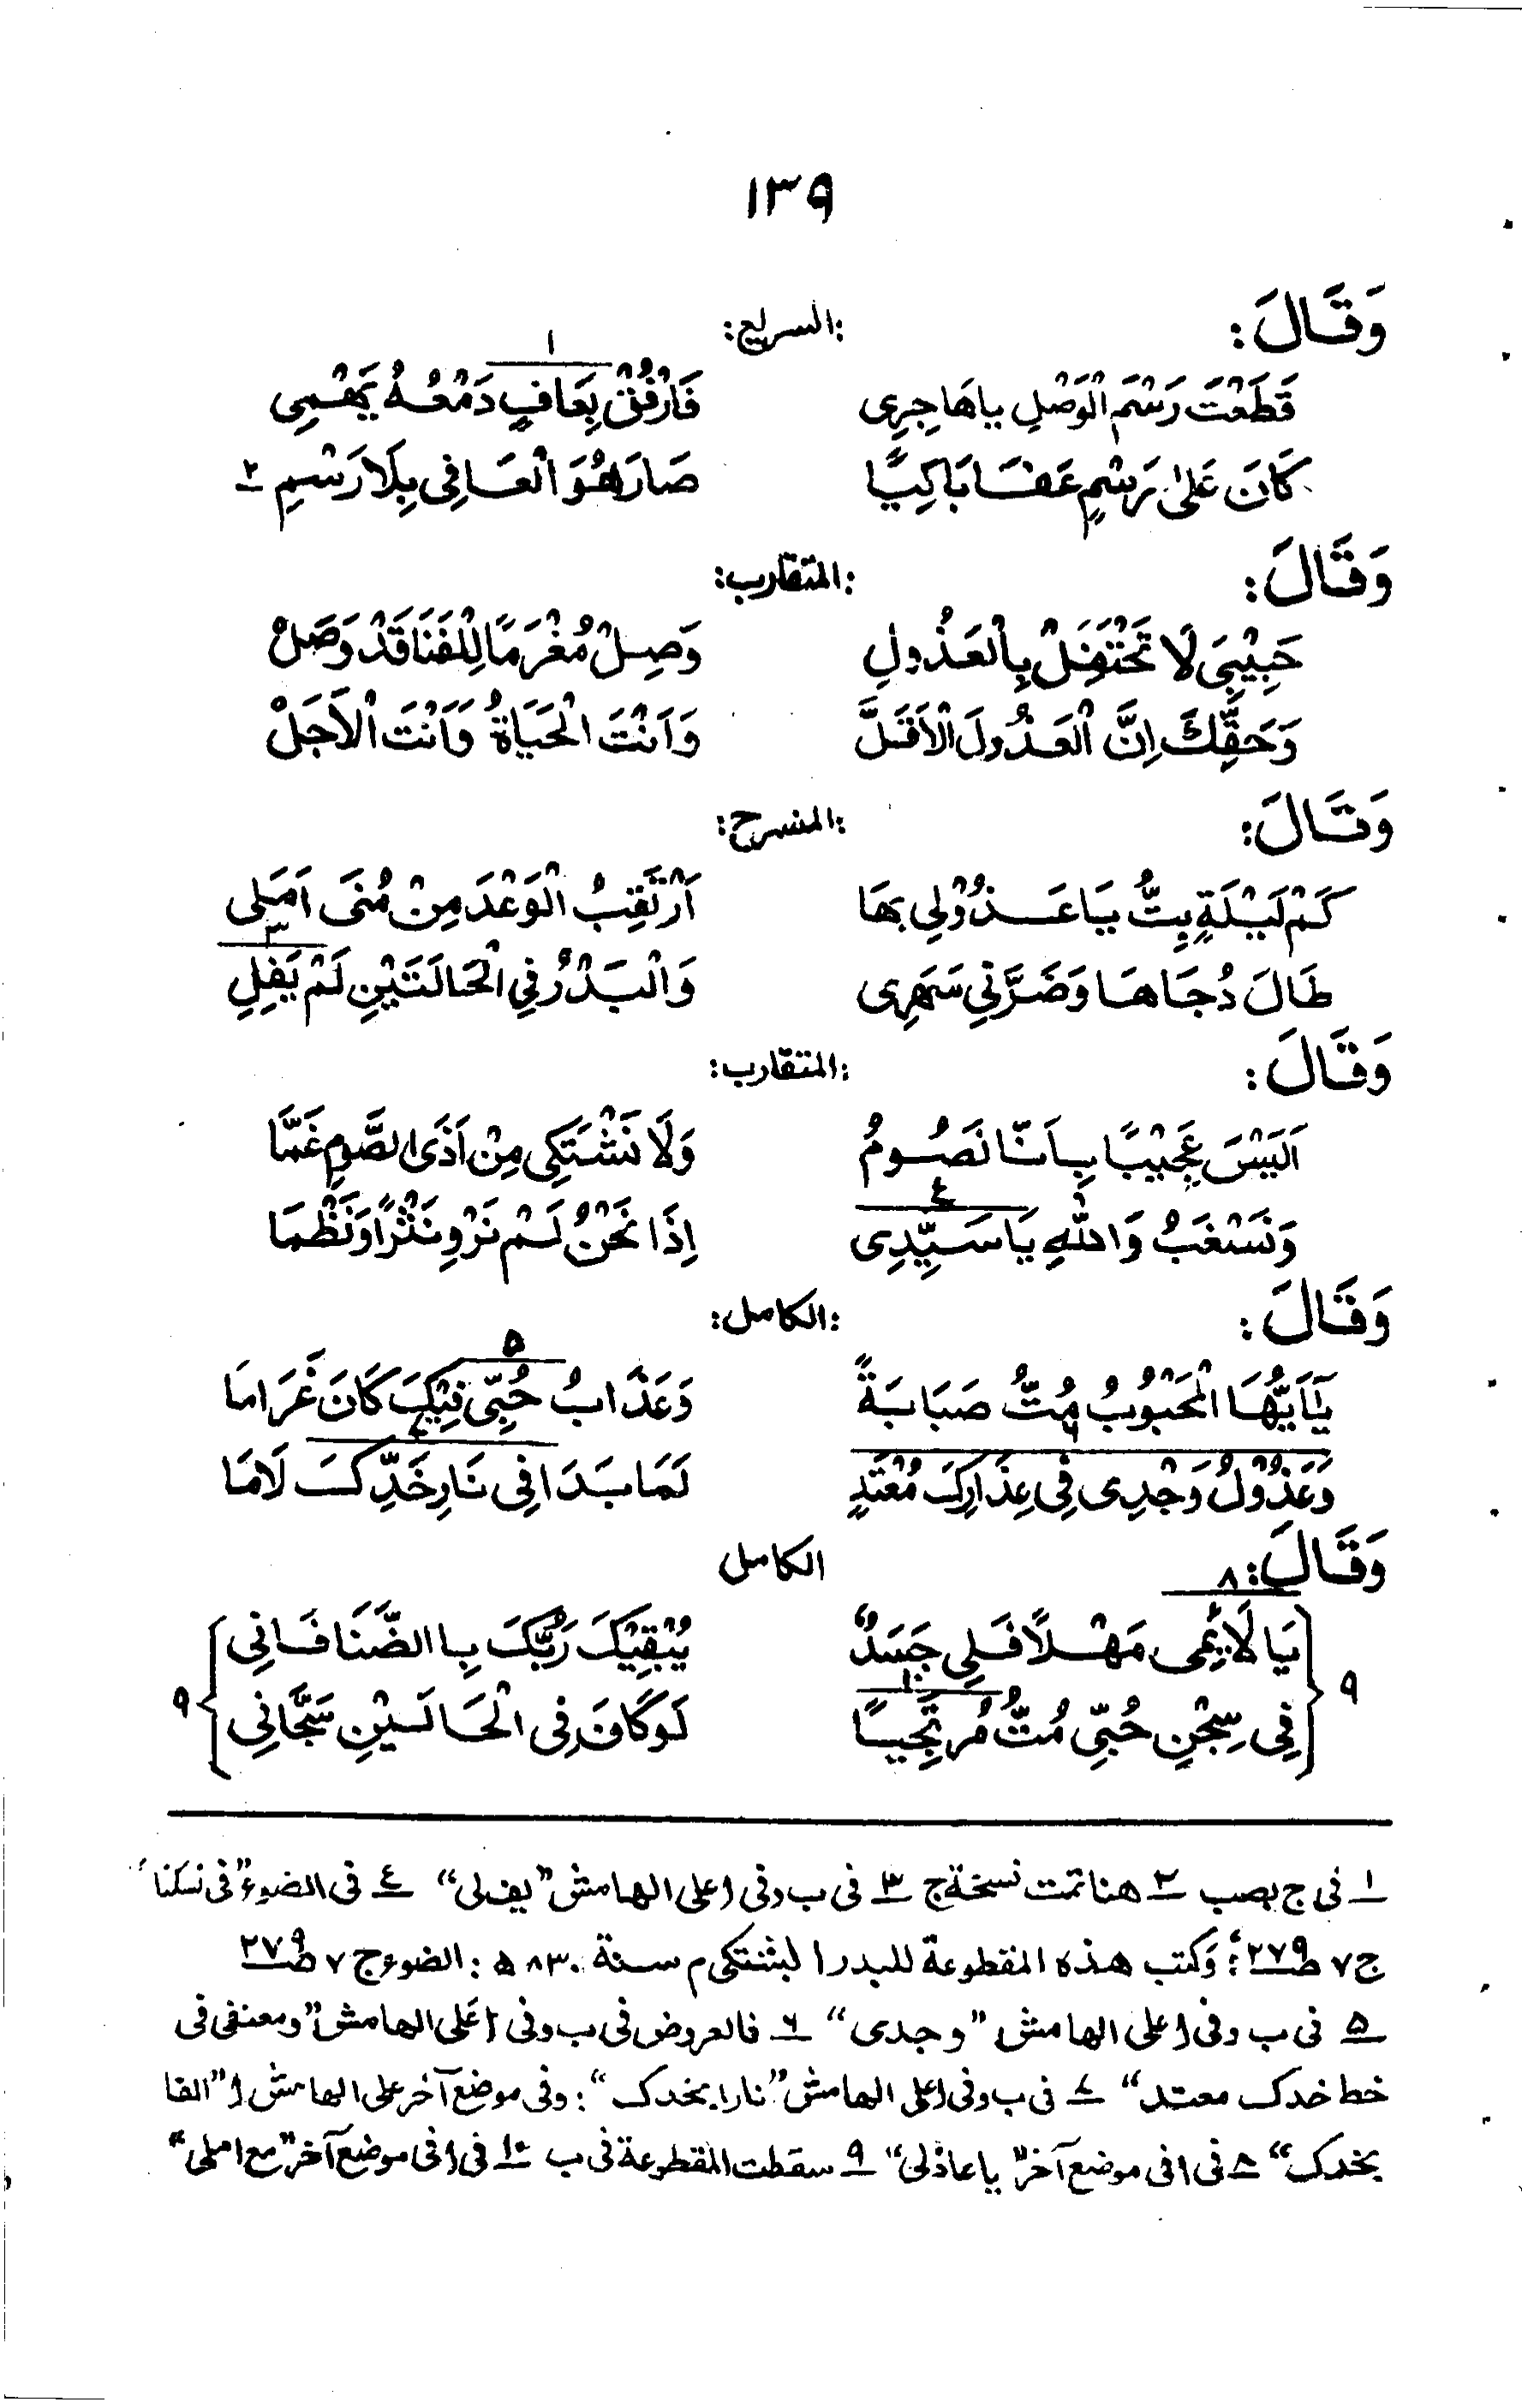 ١٣٩
وَقَالَ: :السريع:
١
قَطَعْتَ رَسْمَ الْوَصْلِ يا هَاجِرِى فَارْفُقْ بِعَافٍ دَمْعُهُ يَهْمِى
كَانَ عَلىٰ رَسْمٍ عَفَا بَاكِيًا صَارَ هُوَ الْعَافِى بِلَا رَسْمِ ٢
وَقَالَ: :المتقارب:
حَبِيْبِىَ لَا تَحْتَفِلْ بِالْعَذُولِ وَصِلْ مُغْرَمًا لِلْفَنَا قَدْ وَصَلْ
وَحَقِّكَ اِنَّ الْعَذُولَ الْاَقَلَّ وَاَنْتَ الْحَيَاةُ وَاَنْتَ الْاَجَلْ
وَقَالَ: :المنسرح:
كَمْ لَيْلَةٍ بِتُّ يَا عَذُوْلِى بِهَا اَرْتَقِبُ الْوَعْدَ مِنْ مُنَى اَمَلِى
٣
طَالَ دُجَاهَا وَضَرَّنِي سَهَرِى وَالْبَدْرُ فِي الْحَالَتَيْنِ لَمْ يَفِلِ
وَقَالَ: :المتقارب:
اَلَيْسَ عَجِيْبًا بِاَنَّا نَصُوْمُ وَلَا نَشْتَكِى مِنْ اَذَى الصَّومِ غَمَّا
٤
وَنَسْغَبُ وَاللهِ يَا سَيِّدِى اِذَا نَحْنُ لَمْ نَرْوِ نَثْرًا وَنَظْمَا
وَقَالَ: :الكامل:
٥
يَا اَيُّهَا الْمَحْبُوْبُ مُتُّ صَبَابَةً وَعَذَابُ حُبِّى فِيْكَ كَانَ غَرَامَا
٦ ٧
وَعَذُوْلُ وَجْدِى فِى عِذَارِكَ مُعْتَدٍ لَمَا بَدَا فِى نَارِ خَدِّكَ لَامَا
وَقَالَ: الكامل
٨
يَا لَائِمِى مَهْلًا فَلِى جَسَدٌ يُبْقِيْكَ رَبُّكَ بِاالضَّنَا فَانِى
٩ ١٠ ٩
فِى سِجْنِ حُبِّى مُتُّ مُرْتَجِيًا لَوْ كَانَ فِى الْحَالَيْنِ سَجَّانِى
١ فى ج بصب ٢ هنا تمت نسخة ج ٣ فى ب وفى ا على الهامش ”يفلى“ ٤ فى الضوء ”فى نسكنا“
ج ٧ ص ٢٧٩؛ وَكتب هذه المقطوعة للبدر البشتكى م سنة ٨٣٠ ه: الضوء ج ٧ ص ٢٧٩
٥ فى ب وفى ا على الهامش ”وجدى“ ٦ فالعروض فى ب وفى ا على الهامش ”ومعنفى فى
خط خدك معتد“ ٧ فى ب وفى ا على الهامش ”نارا بخدك“: وفى موضع آخر على الهامش ا ”الفا
بخدك“ ٨ فى ا فى موضع آخر ”يا عاذلى“ ٩ سقطت المقطوعة فى ب ١٠ فى ا فى موضع آخر ”مع املى“